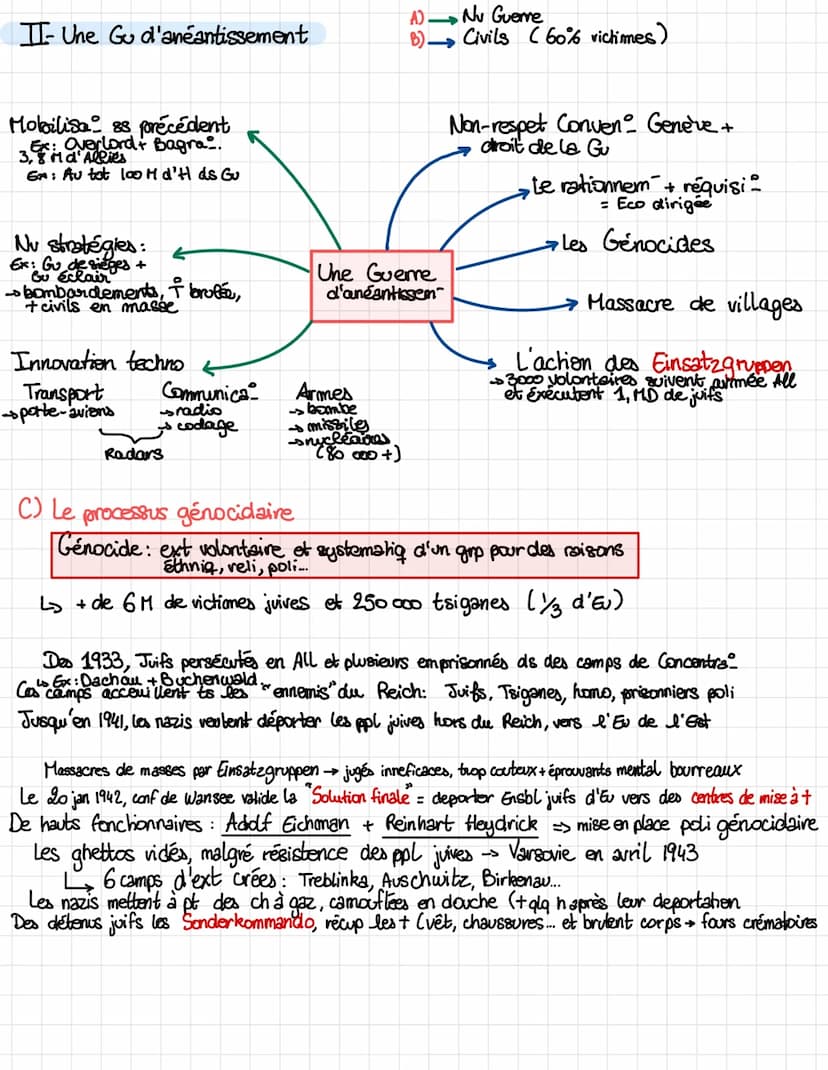 II- Une Gu d'anéantissement
A) → Nv Guerre
B) → Civils (60% victimes)
Mobilisaº ss précédent
Ex: Overlord + Bagraº.
3,8 M d'Alliés
Ex: Au tot 100 M d'H ds Gu
Nv stratégies:
Ex: Gu de sièges +
Gu éclair
→ bombardements, T brulée,
+ civils en masse
Innovation techno
Transport
→ porte-avions
Communicaº
→ radio
→ codage
Radars
Armes
→ bombe
→ missiles
→ nucléaires
(80 000 +)
Une Guerre
d'anéantissem-
Non-respet Convenº Genève +
droit de la Gu
Le rationnem- + réquisiº
= Eco dirigée
Les Génocides
Massacre de villages
L'action des Einsatzgruppen
→ 3000 volontaires suivent armée All
et éxécutent 1, MD de juifs
C) Le processus génocidaire
Génocide: ext volontaire et systematiq d'un grp pour des raisons
ethniq, reli, poli...
↳ + de 6 M de victimes juives et 250 000 tsiganes (1/3 d'Eu)
Des 1933, Juifs persécutés en All et plusieurs emprisonnés ds des camps de Concentraº
↳ Ex: Dachau + Buchenwald.
Ces camps accueillent ts les "ennemis" du Reich: Juifs, Tsiganes, homo, prisonniers poli
Jusqu'en 1941, les nazis veulent déporter les ppl juives hors du Reich, vers l'Eu de l'Est
Massacres de masses par Einsatzgruppen → jugés inneficaces, trop couteux + éprouvants mental bourreaux
Le 20 jan 1942, conf de Wansee valide la "Solution finale" = deporter Ensbl juifs d'Eu vers des centres de mise à †
De hauts fonctionnaires: Adolf Eichman + Reinhart Heydrick => mise en place poli génocidaire
Les ghettos vidés, malgré résistence des ppl juives → Varsovie en avril 1943
↳ 6 camps d'ext crées: Treblinka, Auschwitz, Birkenau...
Les nazis mettent à pt des ch à gaz, camouflées en douche (+ qlq h après leur deportation
Des détenus juifs les Sonderkommando, récup les † (vêt, chaussures... et brulent corps → fours crématoires